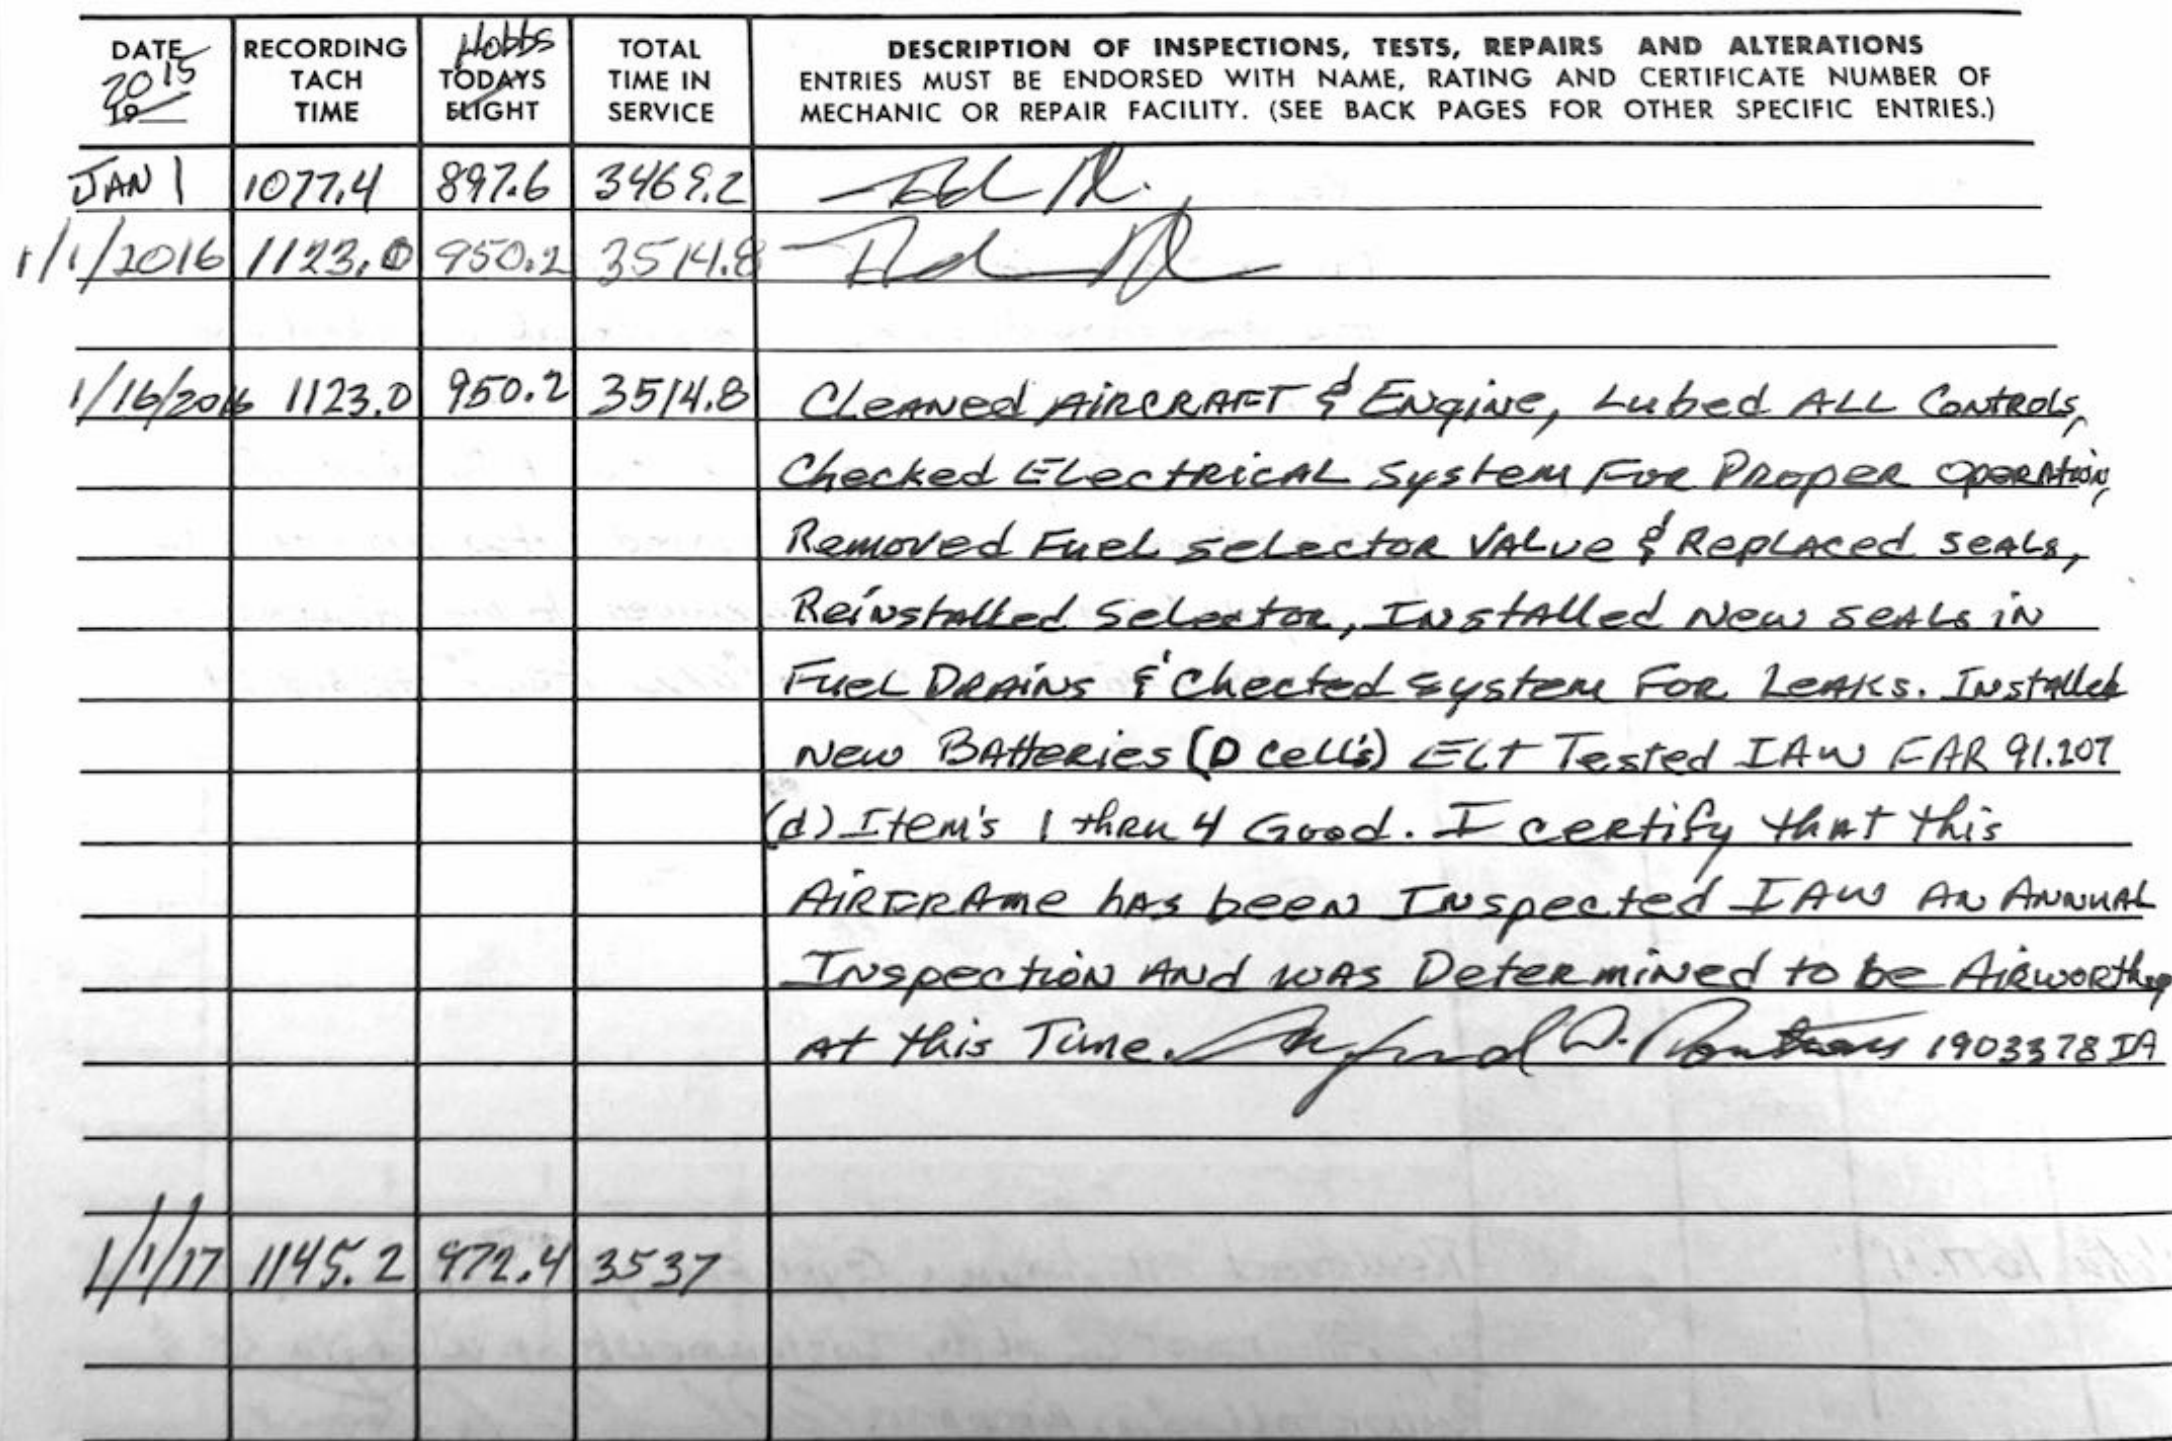 DATE 2015 19
RECORDING TACH TIME
Hobbs TODAYS FLIGHT
TOTAL TIME IN SERVICE
DESCRIPTION OF INSPECTIONS, TESTS, REPAIRS AND ALTERATIONS
ENTRIES MUST BE ENDORSED WITH NAME, RATING AND CERTIFICATE NUMBER OF
MECHANIC OR REPAIR FACILITY. (SEE BACK PAGES FOR OTHER SPECIFIC ENTRIES.)
JAN 1 1077.4 897.6 3469.2
1/1/2016 1123.0 950.2 3514.8
1/16/2016 1123.0 950.2 3514.8 Cleaned Aircraft & Engine, Lubed ALL Controls,
Checked Electrical System For Proper operation,
Removed Fuel selector Value & Replaced seals,
Reinstalled Selector, Installed New seals in
Fuel Drains & Chected system For Leaks. Installed
New Batteries (D cell's) ELT Tested IAW FAR 91.207
(d) Item's 1 thru 4 Good. I certify that this
Airframe has been Inspected IAW An Annual
Inspection And was Determined to be Airworthy
at this Time. 1903378 IA
1/1/17 1145.2 972.4 3537